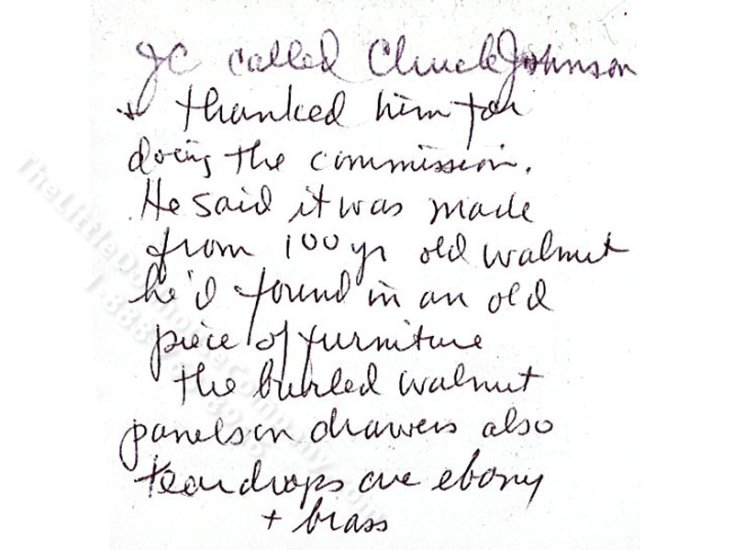 JC called Chuck Johnson
+ thanked him for
doing the commission.
He said it was made
from 100 yr old walnut
he'd found in an old
piece of furniture
the burled walnut
panels on drawers also
teardrops are ebony
+ brass
TheLittleDollhouseCompany.com